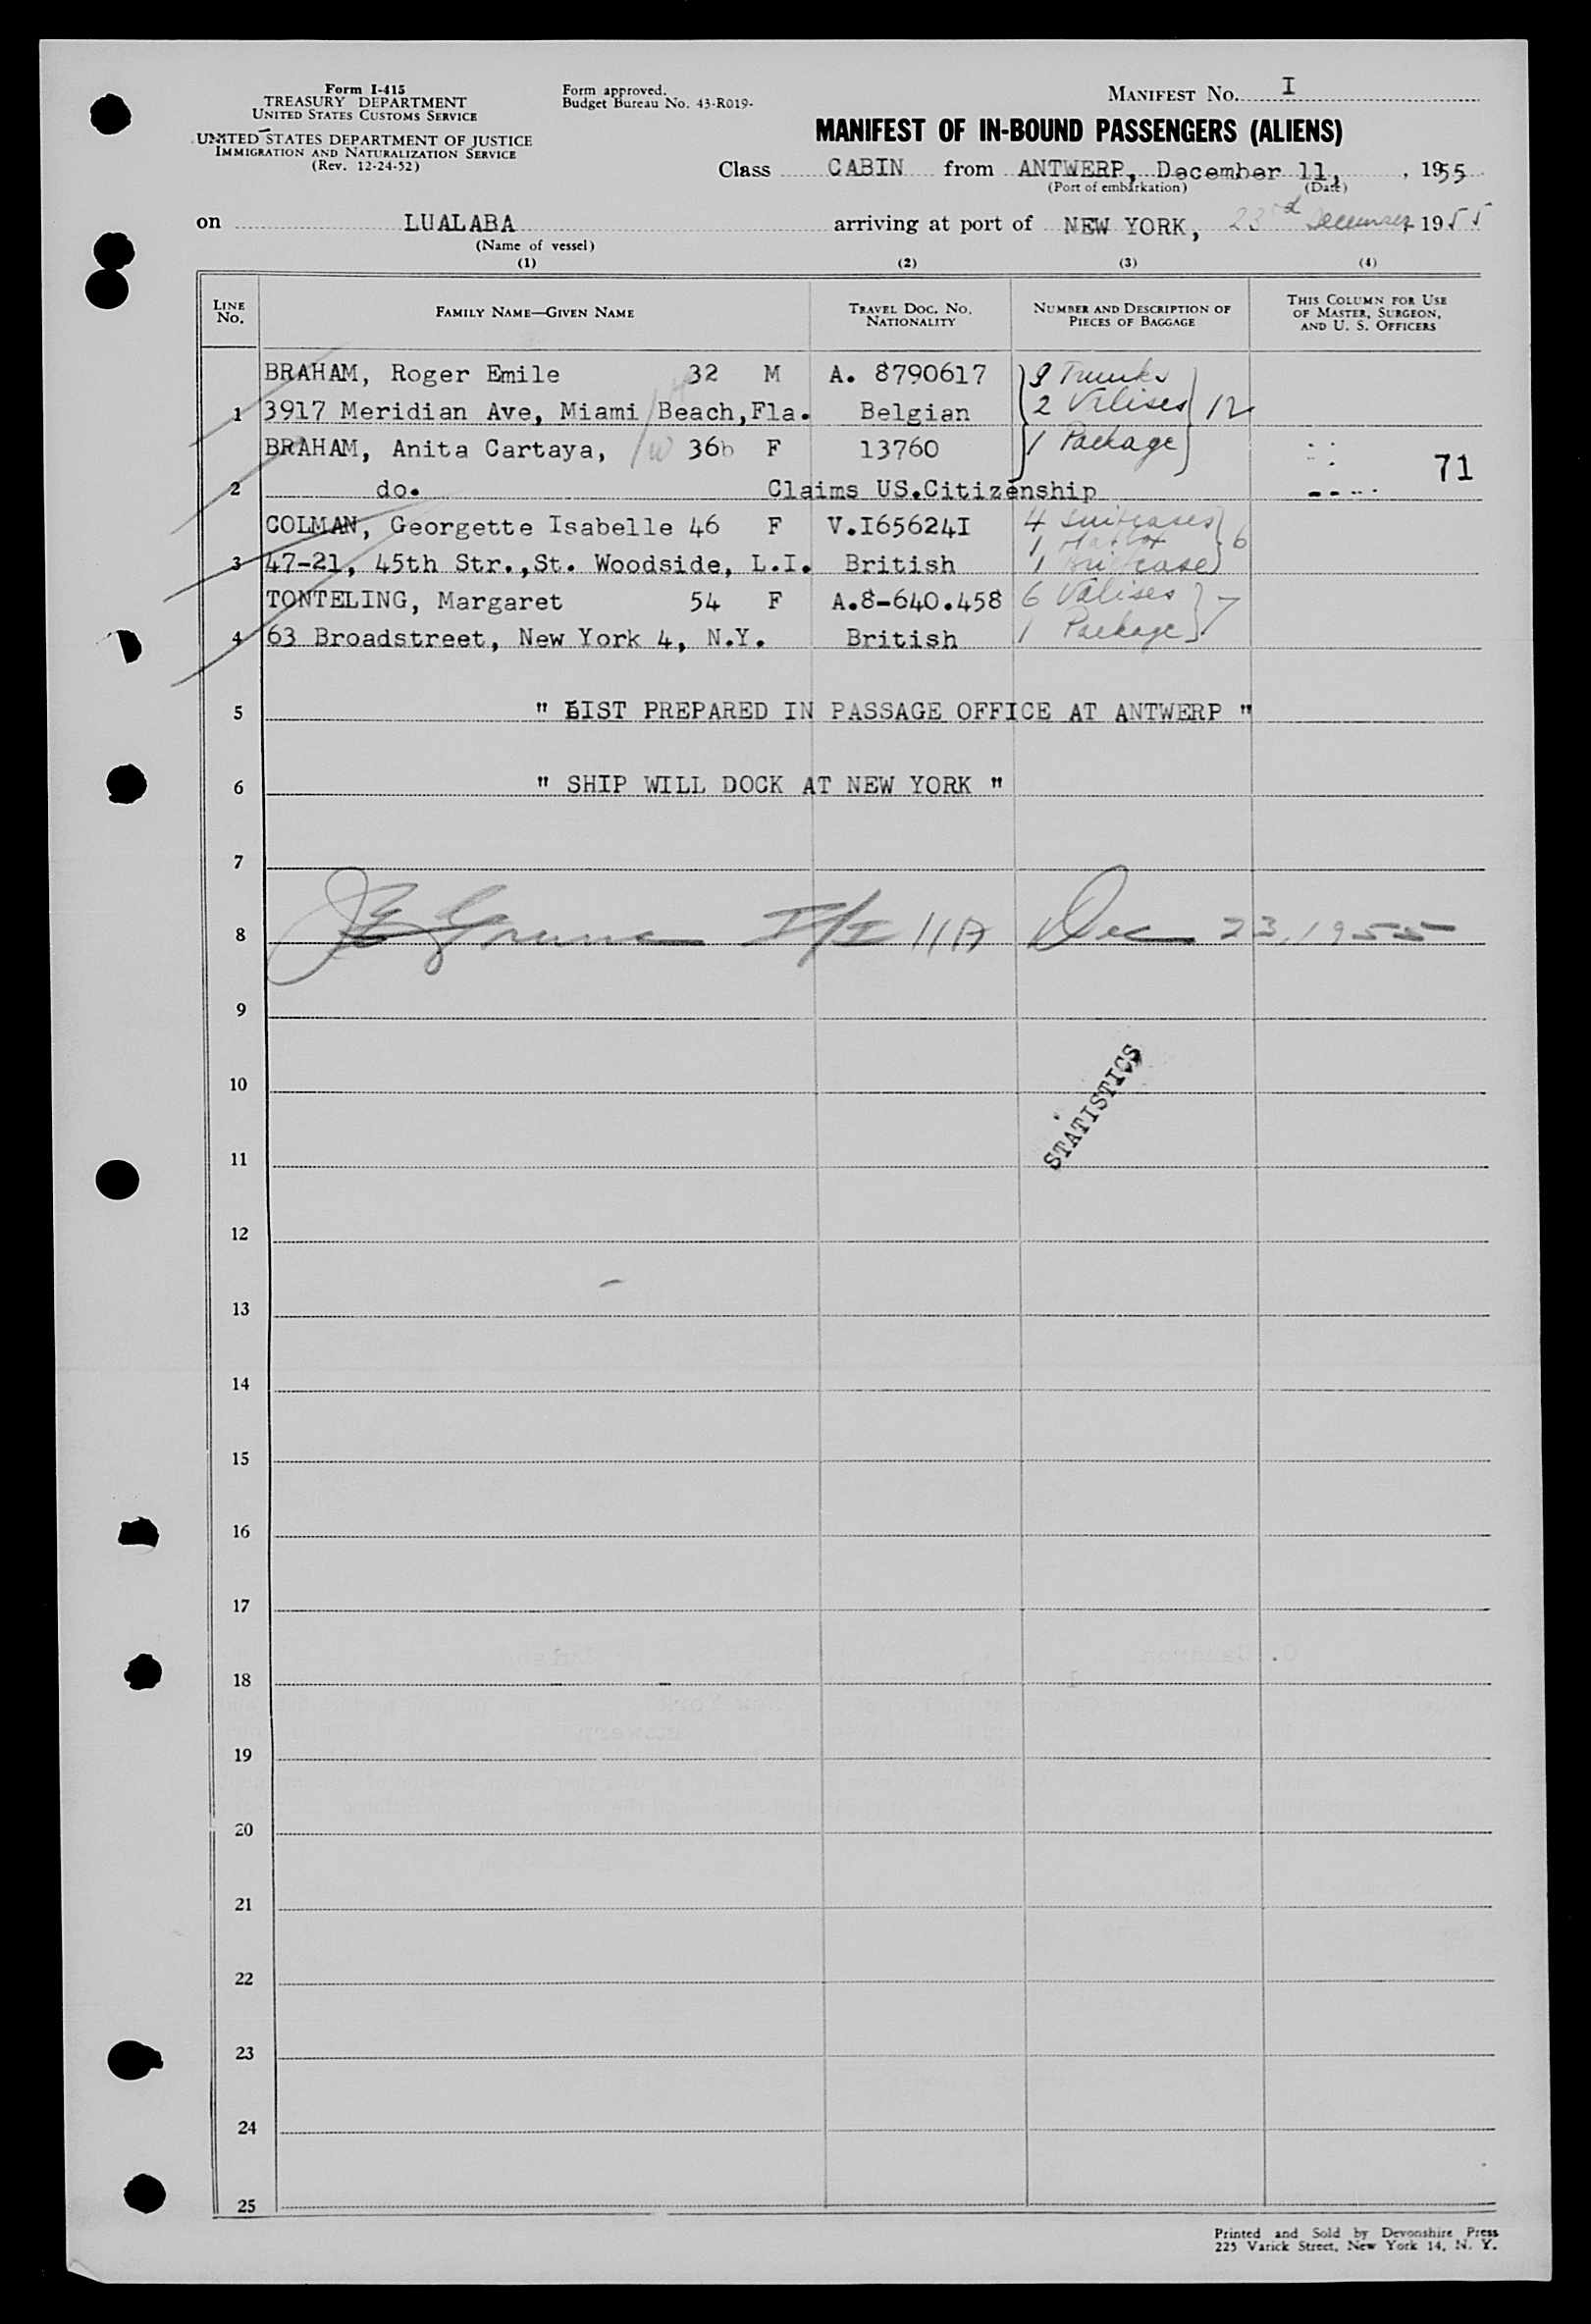 Form I-415
TREASURY DEPARTMENT
UNITED STATES CUSTOMS SERVICE
UNITED STATES DEPARTMENT OF JUSTICE
IMMIGRATION AND NATURALIZATION SERVICE
(Rev. 12-24-52)
Form approved.
Budget Bureau No. 43-R019-
MANIFEST No. I
MANIFEST OF IN-BOUND PASSENGERS (ALIENS)
Class CABIN from ANTWERP, December 11, , 1955
(Port of embarkation) (Date)
on LUALABA arriving at port of NEW YORK, 23rd December 1955
(Name of vessel)
(1) (2) (3) (4)
LINE No. FAMILY NAME—GIVEN NAME TRAVEL DOC. No. NATIONALITY NUMBER AND DESCRIPTION OF PIECES OF BAGGAGE THIS COLUMN FOR USE OF MASTER, SURGEON, AND U. S. OFFICERS
BRAHAM, Roger Emile 32 M A. 8790617 9 Trunks
1 3917 Meridian Ave, Miami Beach,Fla. Belgian 2 Valises 12
BRAHAM, Anita Cartaya, W 36b F 13760 1 Package
2 do. Claims US.Citizenship 71
COLMAN, Georgette Isabelle 46 F V.I65624I 4 Suitcases
1 Hatbox 6
3 47-21, 45th Str.,St. Woodside, L.I. British 1 Briefcase
TONTELING, Margaret 54 F A.8-640.458 6 Valises
4 63 Broadstreet, New York 4, N.Y. British 1 Package 7
5 " LIST PREPARED IN PASSAGE OFFICE AT ANTWERP "
6 " SHIP WILL DOCK AT NEW YORK "
7
8 Dec 23, 1955
9
10
STATISTICS
11
12
13
14
15
16
17
18
19
20
21
22
23
24
25
Printed and Sold by Devonshire Press
225 Varick Street, New York 14, N. Y.